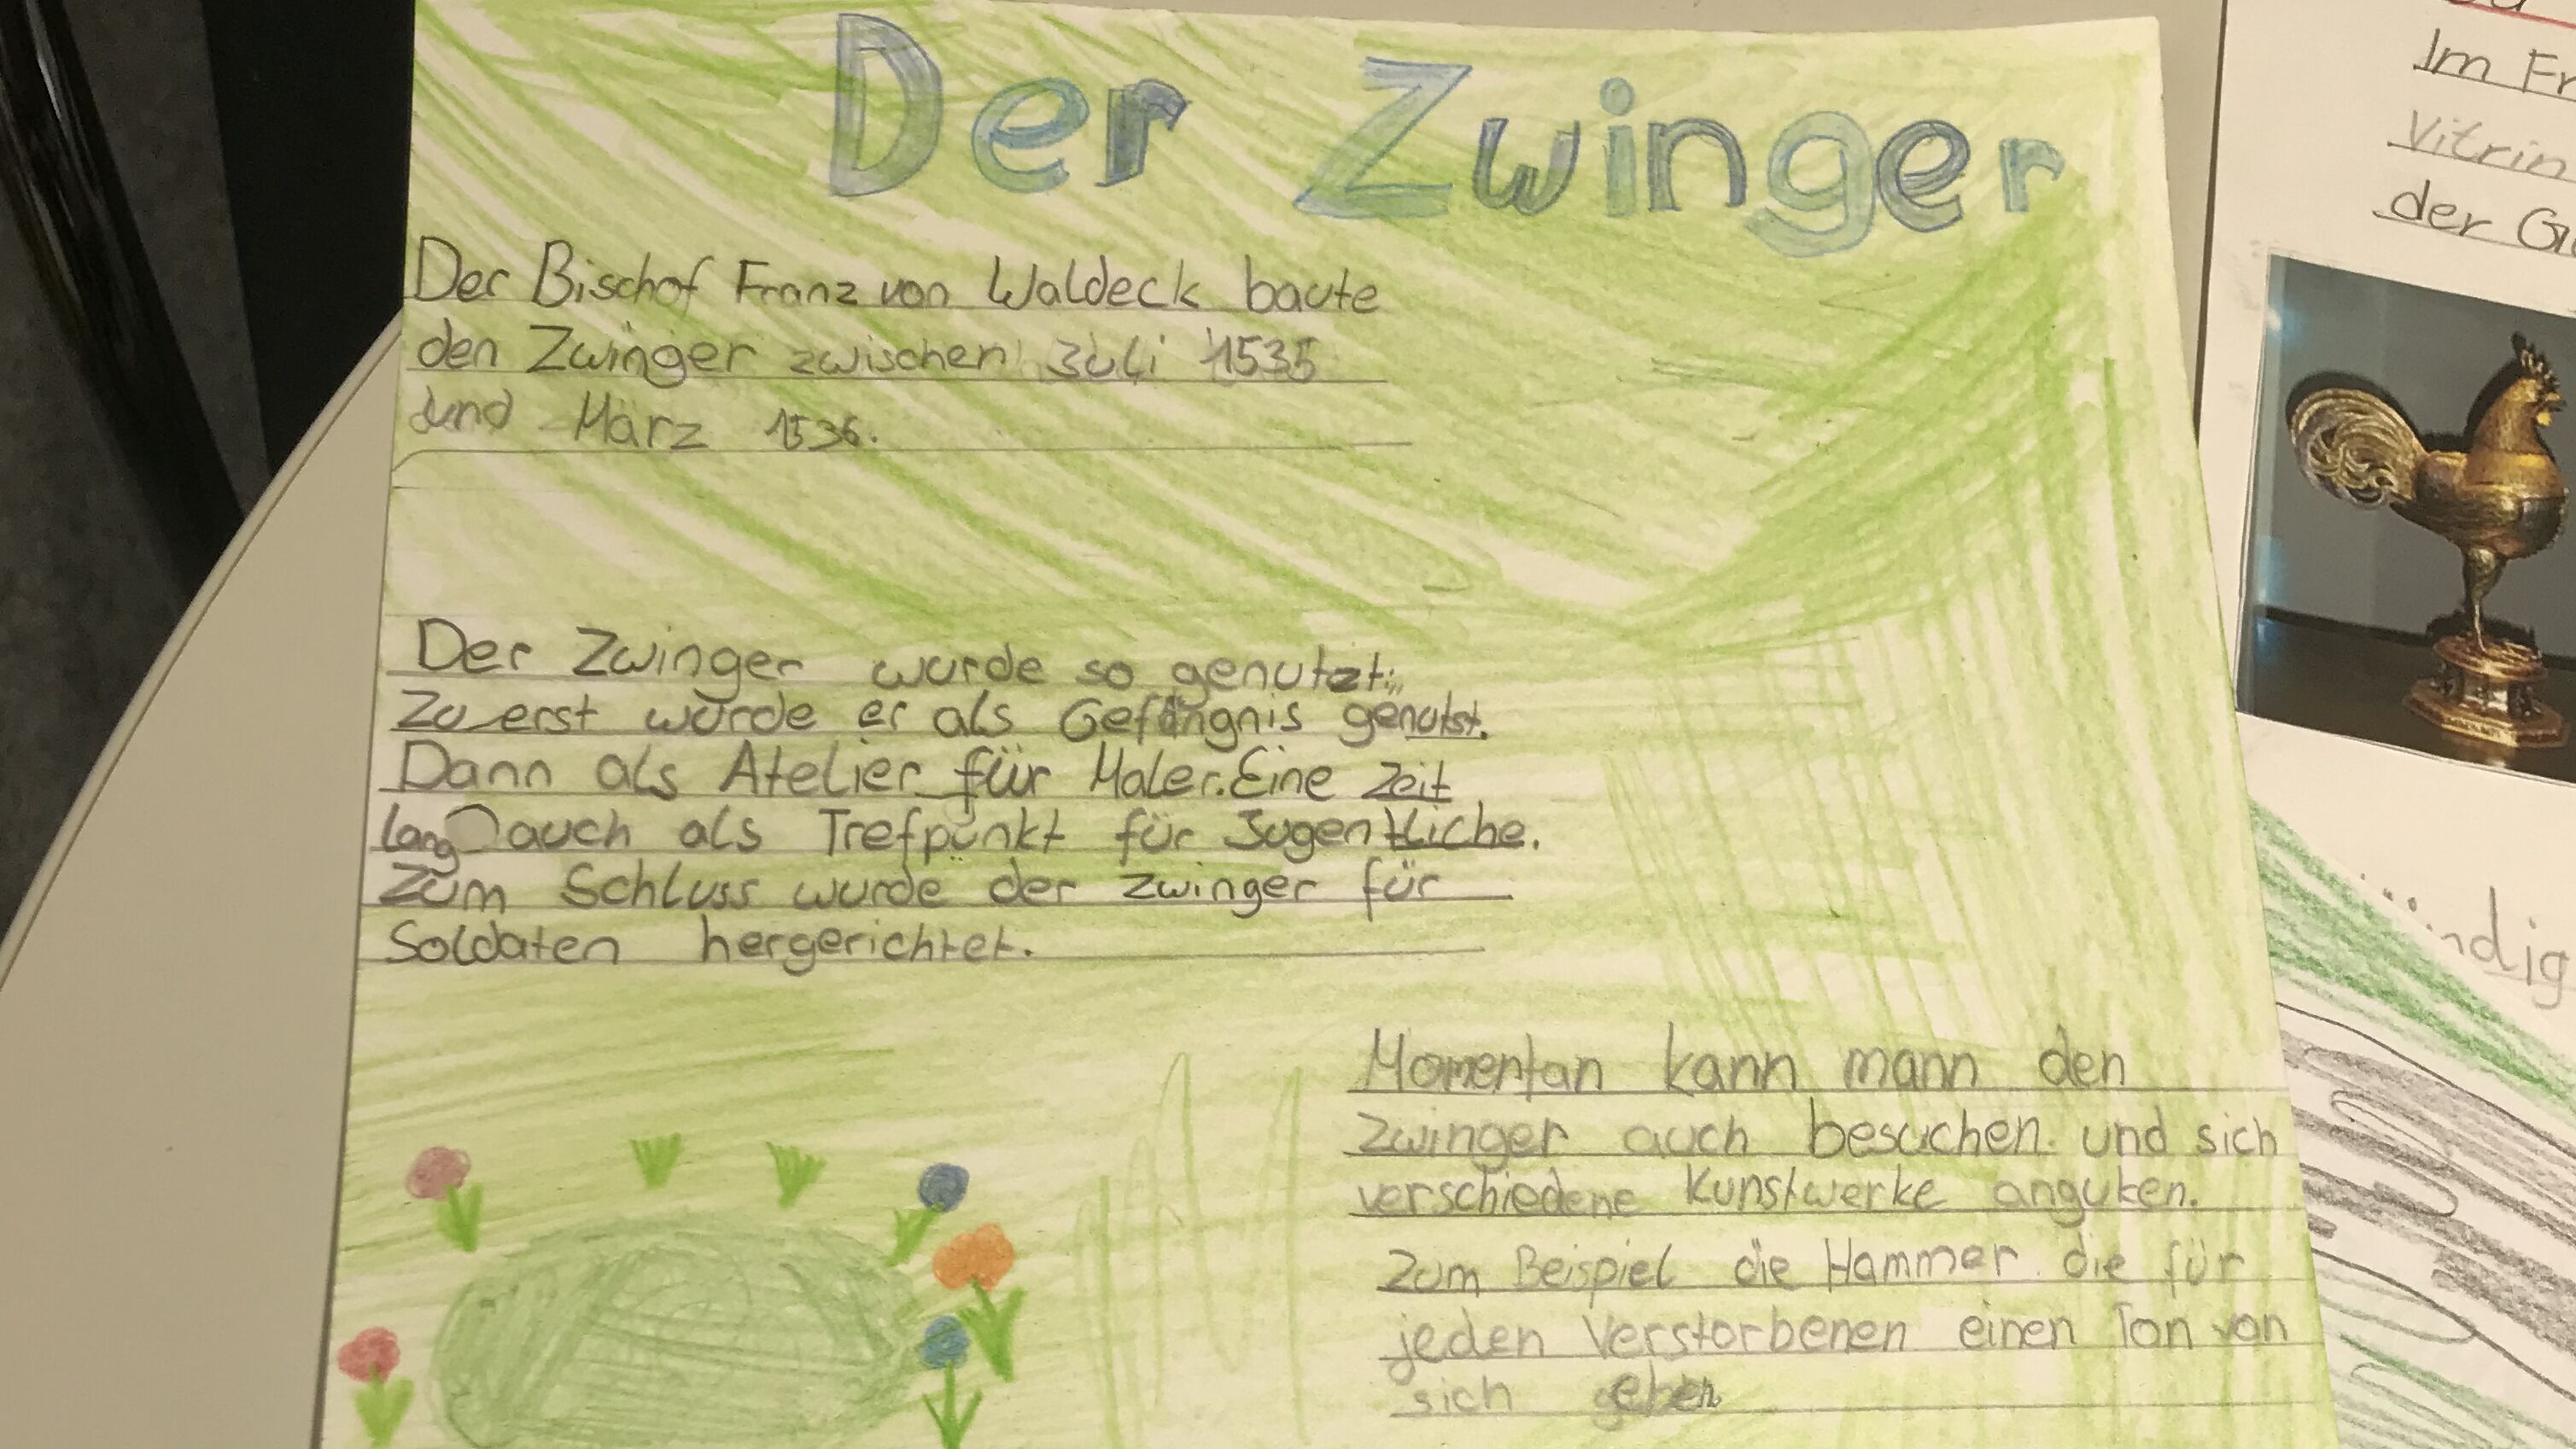 Der Zwinger
Der Bischof Franz von Waldeck baute
den Zwinger zwischen Juli 1535
und März 1536.
Der Zwinger wurde so genutzt:
Zu erst wurde er als Gefängnis genutst.
Dann als Atelier für Maler. Eine Zeit
lang auch als Trefpunkt für Jugentliche.
Zum Schluss wurde der Zwinger für
Soldaten hergerichtet.
Momentan kann mann den
Zwinger auch besuchen und sich
verschiedene Kunstwerke anguken.
Zum Beispiel die Hammer die für
jeden Verstorbenen einen Ton von
sich geben
Im Fr
Vitrin
der G
ndig